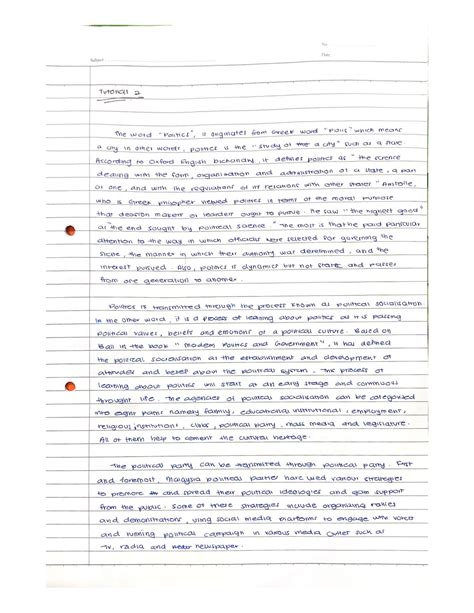 No.
Date
Subject
Tutorial 2
The word "Politics", is originates from Greek word "Polis" which means
a city in other words, politics is the "study of the a city" such as a state.
According to Oxford English Dictionary, it defines politics as "the science
dealing with the form, organisation and administration of a state, a part
of one, and with the regulations of its relations with other states" Aristotle,
who is Greek philospher viewed politics in terms of the moral purpose
that decision makers or leader ought to pursue. He saw "the highest good"
as the end sought by political science. The most is that he paid particular
attention to the was in which officials were selected for governing the
state, the manner in which their authority was determined, and the
interest pursued. Also, politics is dynamics but not static and passes
from one generation to another.
Politics is transmitted through the process known as political socialisation.
In the other word, it is a process of learning about politics as it is passing
political values, beliefs and emotions of a political culture. Based on
Ball in the book "Modern Politics and Government", it has defined
the political socialisation as the establishment and development of
attitudes and beliefs about the political system. This process of
learning about politics will start at an early stage and continuous
throught life. The agencies of political socialisation can be categorised
into eight parts namely family, educational institutional, employment,
religious institutions, class, political party, mass media and legislature.
All of them help to cement the cultural heritage.
The political party can be transmitted through political party. First
and foremost, Malaysia political parties have used various strategies
to promote and spread their political ideologies and gain support
from the public. Some of these strategies include organizing rallies
and demonstrations, using social media platforms to engage with voters
and running political campaign in various media outlet such as
tv, radio and newspaper.